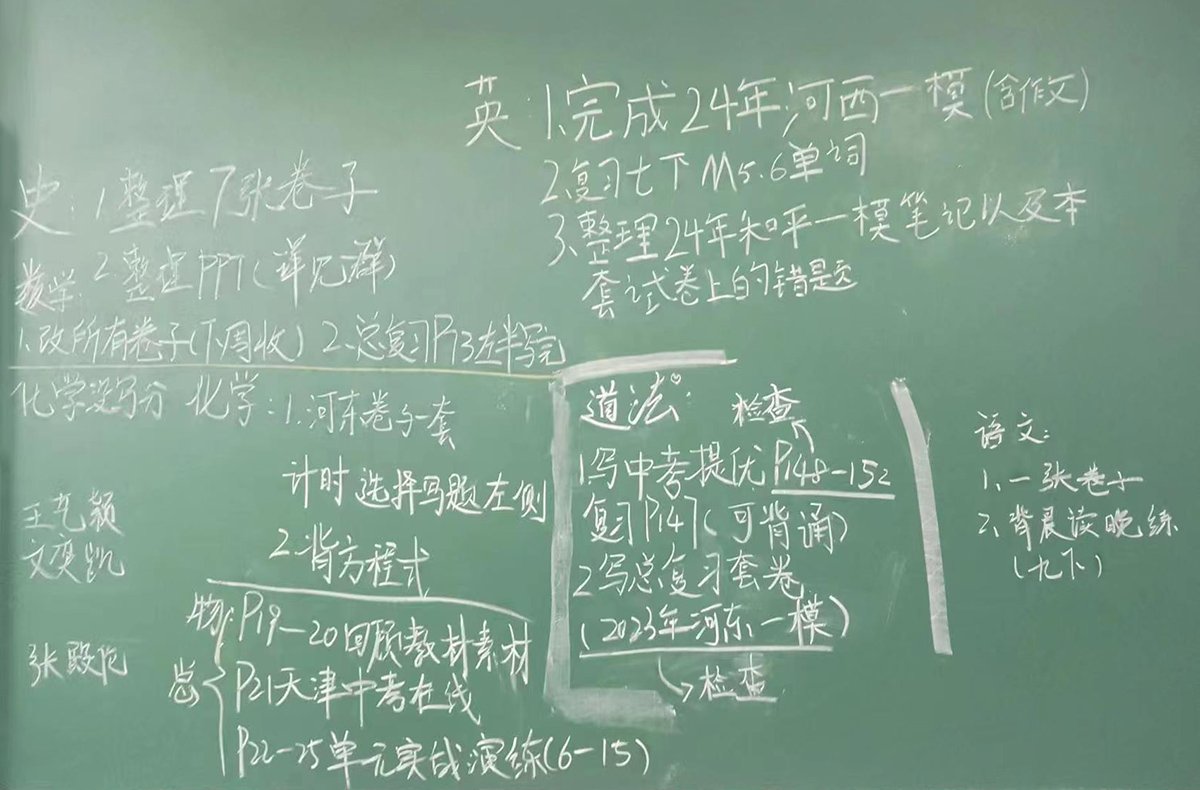 英：1.完成24年河西一模(含作文)
2.复习七下M5.6单词
3.整理24年和平一模笔记以及本
套试卷上的错题
史：1.整理7张卷子
2.整理PPT(详见群)
数学：
1.改所有卷子(下周收) 2.总复习P13左半写完
化学没写分 化学：1.河东卷子一套
计时 选择写题左侧
2.背方程式
王艺颖
文奕凯
张殿
物：P19-20回顾教材素材
总 P21天津中考在线
P22-25单元实战演练(6-15)
道法： 检查
1.写中考提优P148-152
复习P147(可背诵)
2.写总复习套卷
(2023年河东一模)
检查
语文：
1.一张卷子
2.背晨读晚练
(九下)